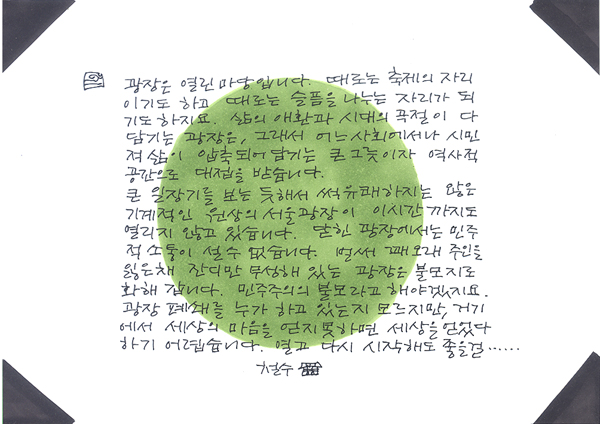 광장은 열린 마당입니다. 때로는 축제의 자리
이기도 하고 때로는 슬픔을 나누는 자리가 되
기도 하지요. 삶의 애환과 시대의 곡절이 다
담기는 광장은, 그래서 어느 사회에서나 시민
적 삶이 압축되어 담기는 큰 그릇이자 역사적
공간으로 대접을 받습니다.
큰 일장기를 보는 듯해서 썩 유쾌하지는 않은
기계적인 원상의 서울광장이 이시간까지도
열리지 않고 있습니다. 닫힌 광장에서는 민주
적 소통이 설 수 없습니다. 벌써 꽤 오래 주인을
잃은채 잔디만 무성해 있는 광장은 불모지로
화해 갑니다. 민주주의의 불모라고 해야겠지요.
광장 폐쇄를 누가 하고 있는지 모르지만, 거기
에서 세상의 마음을 얻지못하면 세상을 얻었다
하기 어렵습니다. 열고 다시 시작해도 좋을걸……
철수